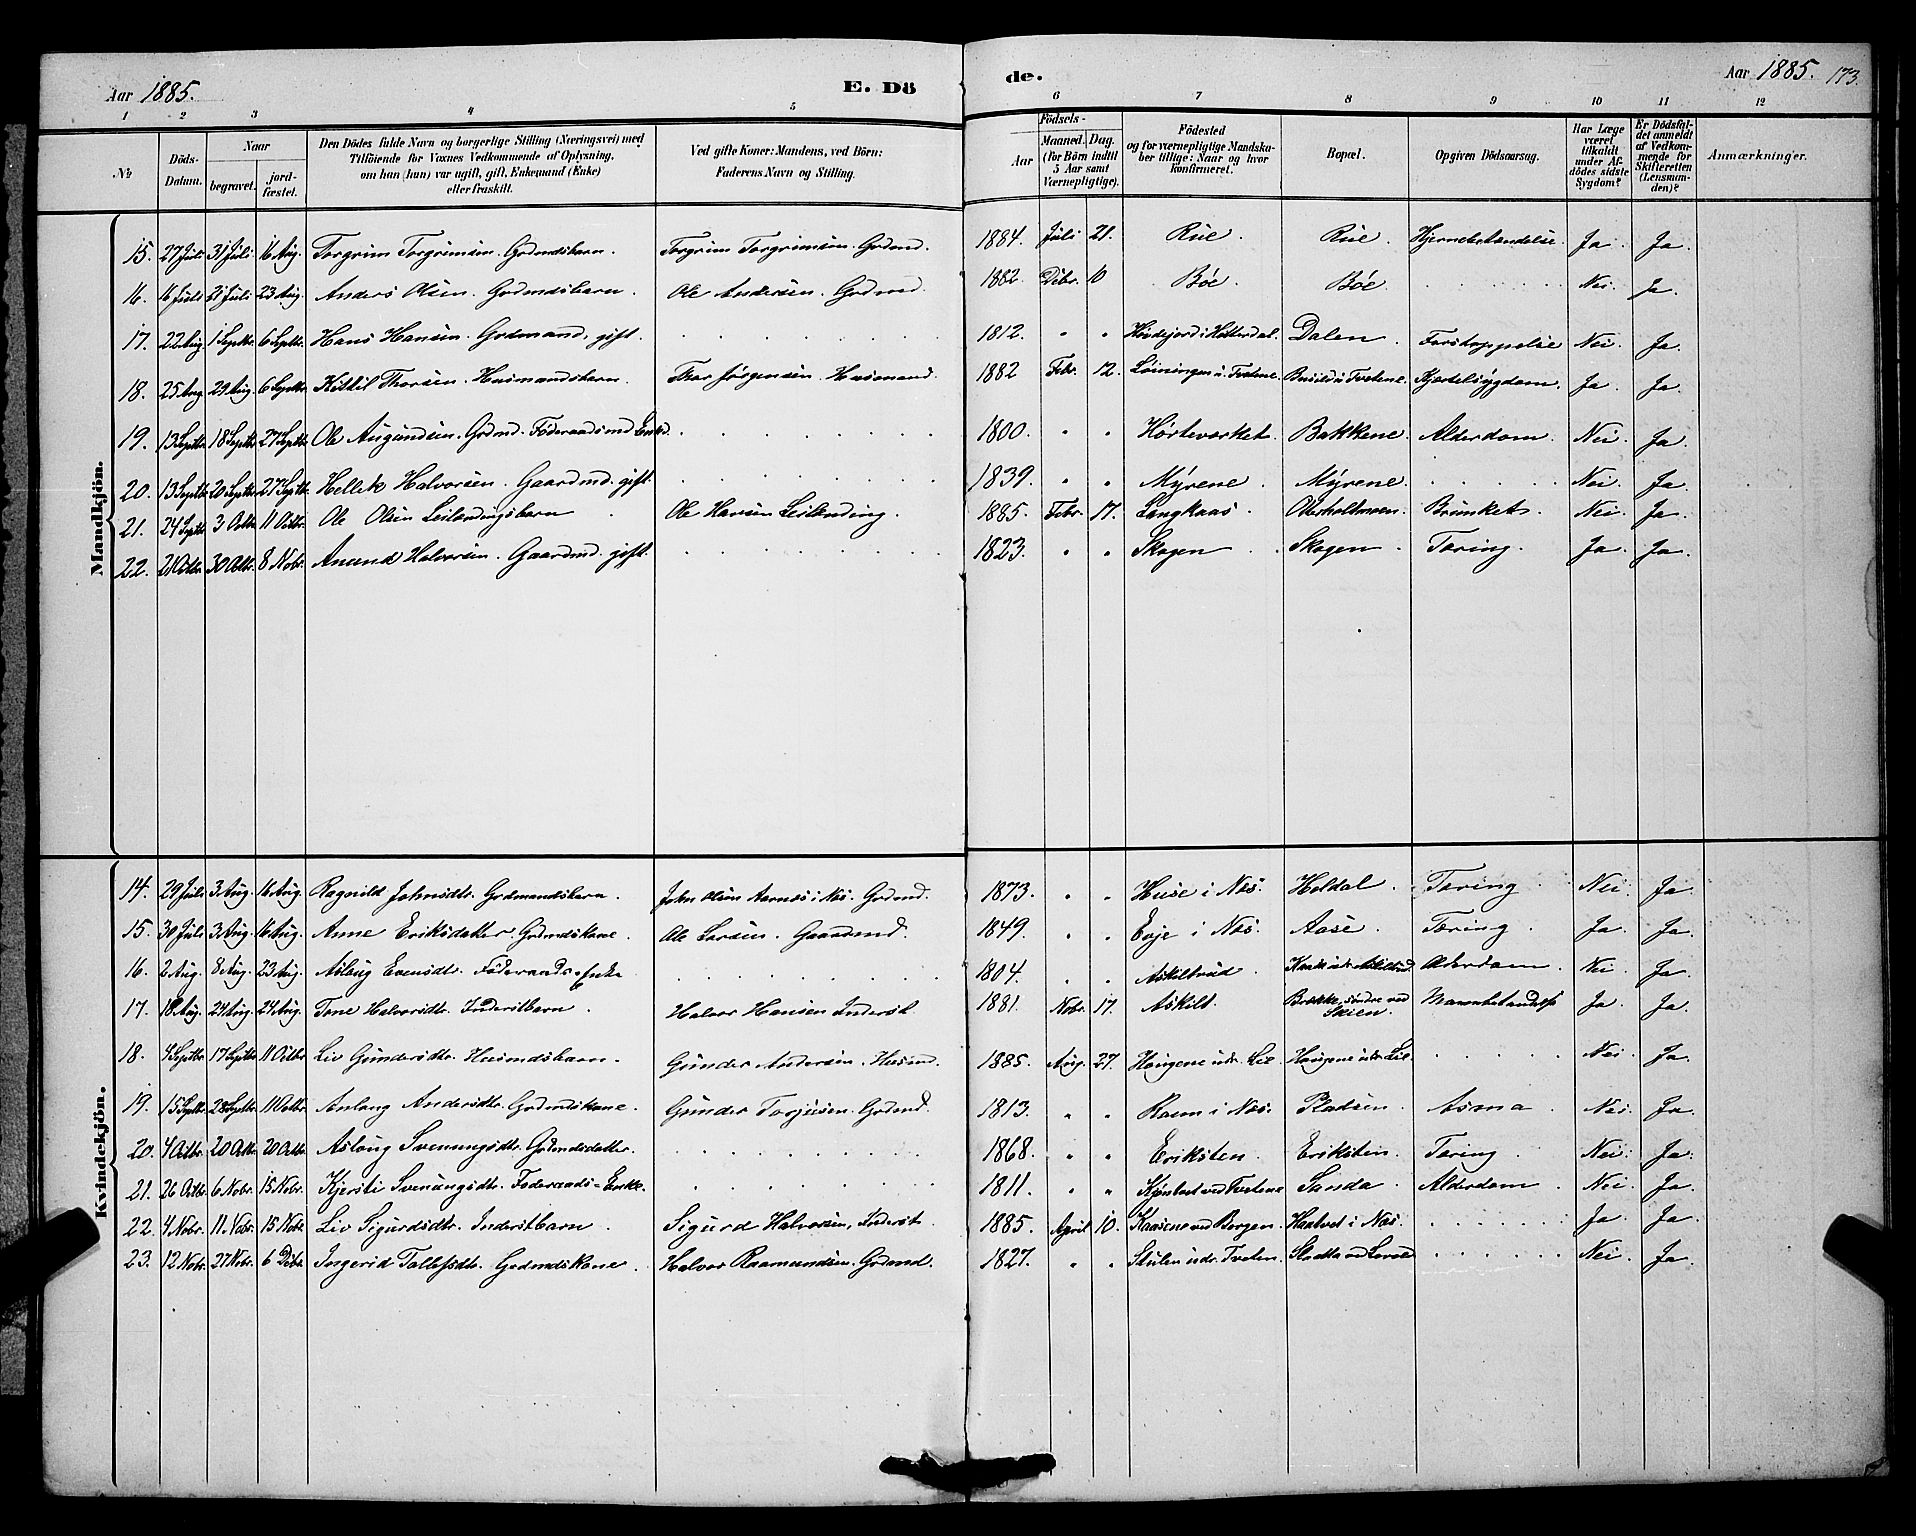 Aar 1885. E. Dö de. Aar 1885. 173.
1 2 3 4 5 6 7 8 9 10 11 12
No Döds-Datum. Naar begravet. jordfæstet. Den Dödes fulde Navn og borgerlige Stilling (Næringsvei) med Tilföiende for Voxnes Vedkommende af Oplysning, om han (hun) var ugift, gift, Enkemand (Enke) eller fraskilt. Ved gifte Koner: Mandens, ved Börn: Faderens Navn og Stilling. Födsels- Aar Maaned. Dag. (for Börn indtil 5 Aar samt Værnepligtige). Födested og for værnepligtige Mandskaber tillige: Naar og hvor konfirmeret. Bopæl. Opgiven Dödsaarsag. Har Læge været tilkaldt under Afdödes sidste Sygdom? Er Dödsfaldet anmeldt af Vedkommende for Skifteretten (Lensmanden)? Anmærkninger.
Mandkjön.
15. 27 Juli 31 Juli 16 Aug. Torgrim Torgrimsen. Grdmdsbarn. Torgrim Torgrimsen. Grdmd. 1884. Juli 21. Rue. Rue. Hjernebetændelse. Ja. Ja.
16. 16 Juli 21 Juli 23 Aug. Anders Olsen. Grdmdsbarn. Ole Andersen. Grdmd. 1882. Debr. 10 Böe. Böe. Nei. Ja.
17. 22 Aug. 1 Septbr. 6 Septbr. Hans Hansen. Grdmand, gift. 1812. " " i Hitterdal. Dalen. Forstoppelse Nei. Ja.
18. 25 Aug. 29 Aug. 6 Septbr. Kittil Thorsen. Husmandsbarn. Thor Jörgensen. Husmand. 1882 Febr. 12. Löiningen u. Tvetene. u. Tvetene. Kjertelsygdom. Ja. Ja.
19. 13 Septbr. 18 Septbr. 27 Septbr. Ole Augundsen. Grdmd. Föderaadsmd Enkd. 1800. " " Hörteverket. Bakkene. Alderdom. Nei. Ja.
20. 13 Septbr. 20 Septbr. 27 Septbr. Hellek Halvorsen. Gaardmd. gift. 1839. " " Myrene. Myrene. Nei. Ja.
21. 24 Septbr. 3 Octbr. 11 Octbr. Ole Olsen Leilendingsbarn Ole Hansen Leilending. 1885. Febr. 17. Langkaas. Oterholtmoen. Brunket. Nei. Ja.
22. 21 Octbr. 30 Octbr. 8 Nobr. Anund Halvorsen. Gaardmd. gift. 1823. " " Skogen. Skogen. Tæring. Ja. Ja.
Kvindekjön.
14. 29 Juli 3 Aug. 16 Aug. Ragnild Johnsdtr. Grdmandsbarn. John Olsen Aarnæs i Næs. Grdmd. 1873. " " Huse i Næs. Heldal. Tæring. Nei. Ja.
15. 30 Juli 3 Aug. 16 Aug. Anne Eriksdatter. Grdmdskone. Ole Larsen. Gaardmd. 1849. " " Evje i Næs. Aase. Tæring. Ja. Ja.
16. 2 Aug. 8 Aug. 23 Aug. Aslaug Evensdtr. Föderaads-Enke 1804. " " Askiltrud. Alderdom. Nei. Ja.
17. 18 Aug. 24 Aug. 24 Aug. Tone Halvorsdtr. Inderstbarn. Halvor Hansen Inderst. 1881. Nobr. 17. Askilt. Brekke, söndre ved Skien. Mavebetændelse Ja. Ja.
18. 4 Septbr. 17 Septbr. 11 Octbr. Liv Gundersdtr. Husmdsbarn. Gunder Andersen. Husmd. 1885. Aug. 27. Haugene udr. Lie Haugene udr. Lie. Nei. Ja.
19. 15 Septbr. 28 Septbr. 11 Octbr. Anlaug Andersdtr. Grdmdskone. Gunder Torjusen. Grdmd. 1813. " " i Næs. Pladsen. Asma. Nei. Ja.
20. 4 Octbr. 20 Octbr. 20 Octbr. Aslaug Svenungsdtr. Grdmdsdatter. 1868. " " Eriksten. Eriksten. Tæring. Nei. Ja.
21. 26 Octbr. 6 Nobr. 15 Nobr. Kjersti Svenungsdtr. Föderaads-Enke. 1811. " " ved Tvetene Sanda. Alderdom. Nei. Ja.
22. 4 Nobr. 11. Nobr. 15 Nobr. Liv Sigurdsdtr. Inderstbarn. Sigurd Halvorsen, Inderst. 1885. April 10. Kaasene ved Borgen. Haatvet i Næs. Ja. Ja.
23. 12 Nobr. 27 Nobr. 6 Debr. Ingerid Tollefsdtr. Grdmdskone. Halvor Raamundsen. Grdmd. 1827. " " Stulen udr. Tveten. Nei. Ja.